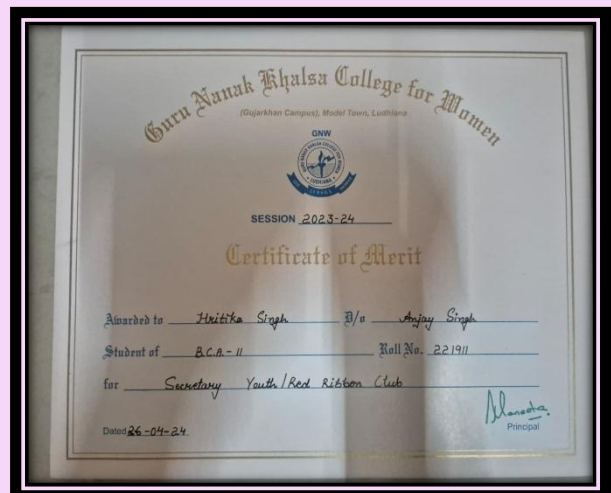 Guru Nanak Khalsa College for Women
(Gujarkhan Campus), Model Town, Ludhiana
GNW
LUDHIANA
SESSION 2023-24
Certificate of Merit
Awarded to Hritika Singh D/o Anjay Singh
Student of B.C.A-II Roll No. 221911
for Secretary Youth/Red Ribbon Club
Principal
Dated 26-04-24